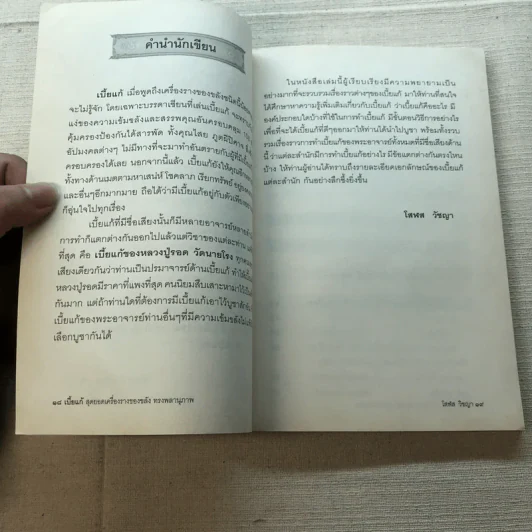 คำนำนักเขียน
เบี้ยแก้ เมื่อพูดถึงเครื่องรางของขลังชนิดนี้น้อยคนที่
จะไม่รู้จัก โดยเฉพาะบรรดาเซียนที่เล่นเบี้ยแก้
แง่ของความเข้มขลังและสรรพคุณอันครอบคลุม
คุ้มครองป้องกันได้สารพัด ทั้งคุณไสย ภูตผีปีศาจ
อัปมงคลต่างๆ ไม่มีทางที่จะมาทำอันตรายกับผู้ที่มี
ครอบครองได้เลย นอกจากนี้แล้ว เบี้ยแก้ยังให้คุณ
ทั้งทางด้านเมตตามหาเสน่ห์ โชคลาภ เรียกทรัพย์
และอื่นๆอีกมากมาย ถือได้ว่ามีเบี้ยแก้อยู่กับตัวเพียง
ก็อุ่นใจไปทุกเรื่อง
เบี้ยแก้ที่มีชื่อเสียงนั้นก็มีหลายอาจารย์หลาย
การทำก็แตกต่างกันออกไปแล้วแต่วิชาของแต่ละท่าน
ที่สุด คือ เบี้ยแก้ของหลวงปู่รอด วัดนายโรง ทุกคน
เสียงเดียวกันว่าท่านเป็นปรมาจารย์ด้านเบี้ยแก้ ทำให้
หลวงปู่รอดมีราคาที่แพงที่สุด คนนิยมสืบเสาะหามาไว้
กันมาก แต่ถ้าท่านใดที่ต้องการมีเบี้ยแก้เอาไว้บูชาสัก
เบี้ยแก้ของพระอาจารย์ท่านอื่นๆที่มีความเข้มขลังไม่
เลือกบูชากันได้
๑๘ เบี้ยแก้ สุดยอดเครื่องรางของขลัง ทรงพลานุภาพ
ในหนังสือเล่มนี้ผู้เรียบเรียงมีความพยายามเป็น
อย่างมากที่จะรวบรวมเรื่องราวต่างๆของเบี้ยแก้ มาให้ท่านที่สนใจ
ได้ศึกษาหาความรู้เพิ่มเติมเกี่ยวกับเบี้ยแก้ ว่าเบี้ยแก้คืออะไร มี
องค์ประกอบใดบ้างที่ใช้ในการทำเบี้ยแก้ มีขั้นตอนวิธีการอย่างไร
เพื่อที่จะได้เบี้ยแก้ที่ดีๆออกมาให้ท่านได้นำไปบูชา พร้อมทั้งรวบ
รวมเรื่องราวการทำเบี้ยแก้ของพระอาจารย์ทั้งหมดที่มีชื่อเสียงด้าน
นี้ ว่าแต่ละสำนักมีการทำเบี้ยแก้อย่างไร มีข้อแตกต่างกันตรงไหน
บ้าง ให้ท่านได้ทราบถึงรายละเอียดเอกลักษณ์ของเบี้ยแก้
แต่ละสำนัก กันอย่างลึกซึ้งยิ่งขึ้น
โสฬส วิชญา
โสฬส วิชญา ๑๙